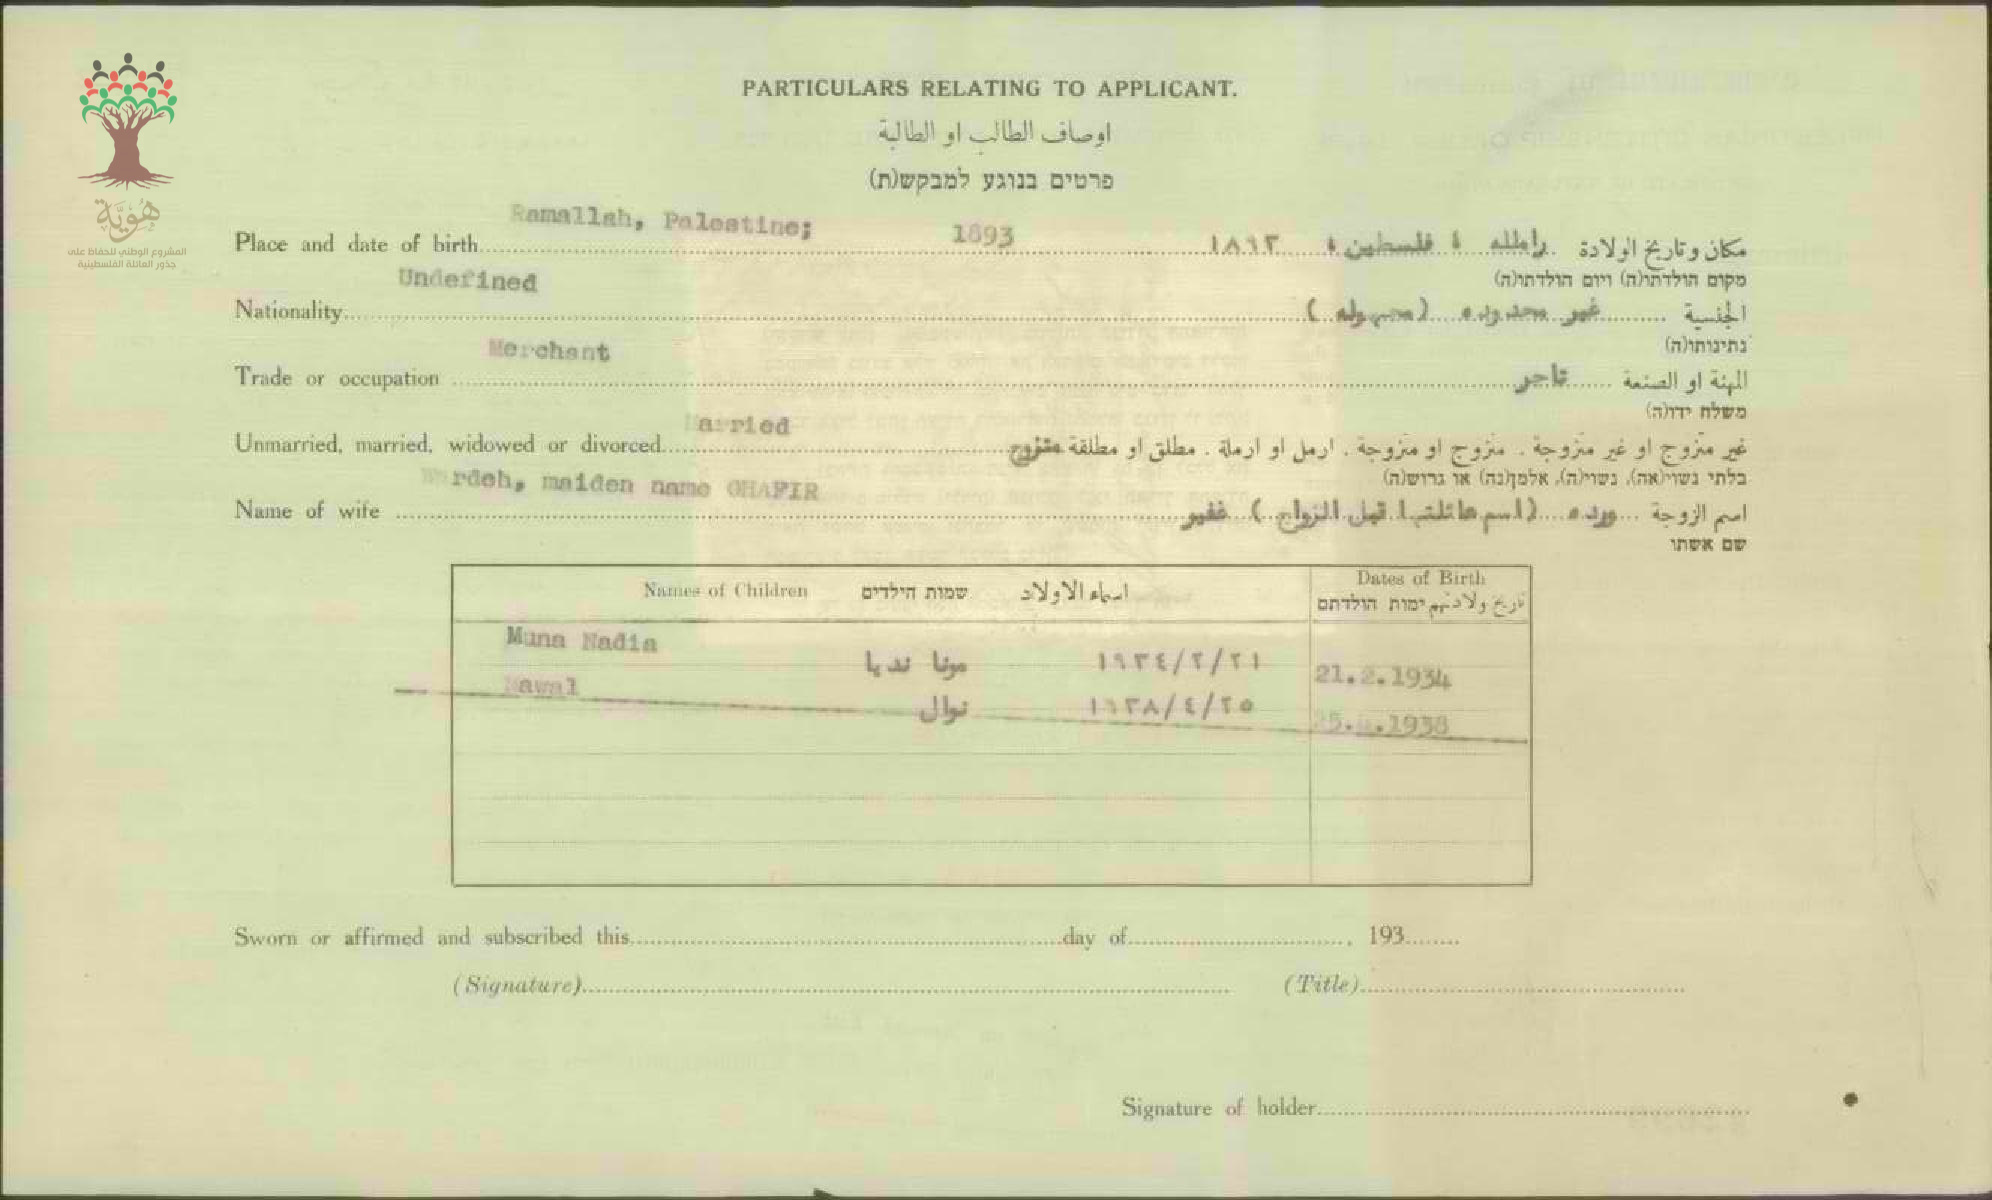 PARTICULARS RELATING TO APPLICANT.
اوصاف الطالب او الطالبة
פרטים בנוגע למבקש(ת)
هُوِيَّة
المشروع الوطني للحفاظ على
جذور العائلة الفلسطينية
Ramallah, Palestine; 1893
Place and date of birth ١٨٩٣ رامله ، فلسطين ، مكان وتاريخ الولادة
מקום הולדתו(ה) ויום הולדתו(ה)
Undefined
Nationality غير محدوده (مجهوله) الجنسية
נתינותו(ה)
Merchant
Trade or occupation تاجر المهنة او الصنعة
משלח ידו(ה)
Married
Unmarried, married, widowed or divorced غير متزوج او غير متزوجة . متزوج او متزوجة . ارمل او ارملة . مطلق او مطلقة متزوج
בלתי נשוי(אה), נשוי(ה), אלמן(נה) או גרוש(ה)
Wardeh, maiden name GHAFIR
Name of wife اسم الزوجة ورده (اسم عائلتها قبل الزواج) غفير
שם אשתו
Names of Children שמות הילדים اسماء الاولاد
Dates of Birth
ימות הולדתם تاريخ ولادتهم
Muna Nadia مونا نديا ١٩٣٤/٢/٢١ 21.2.1934
Nawal نوال ١٩٣٨/٤/٢٥ 25.4.1938
Sworn or affirmed and subscribed this day of , 193
(Signature) (Title)
Signature of holder